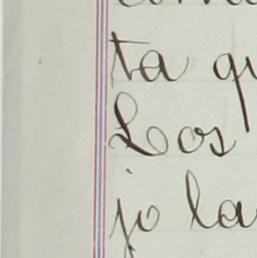 ta qu
Los
jo la